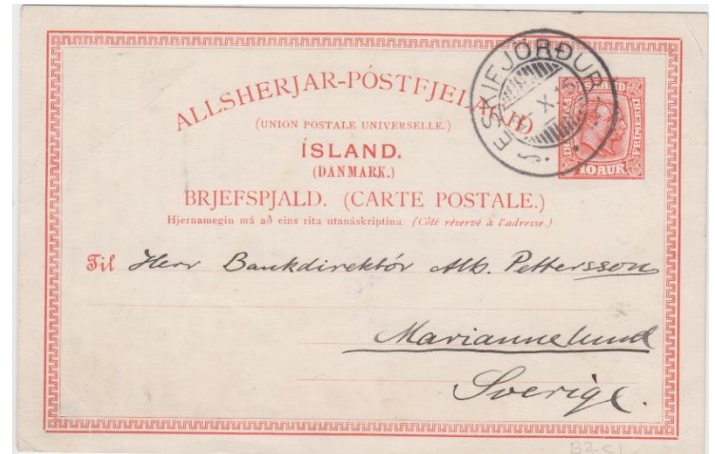 ALLSHERJAR-PÓSTFJELAGID
(UNION POSTALE UNIVERSELLE.)
ÍSLAND.
(DANMARK.)
BRJEFSPJALD. (CARTE POSTALE.)
Hjernamegin má að eins rita utanáskriptina. (Côté réservé à l'adresse)
ESKIFJÖRÐUR
X
ÍSLAND
FRÍMERKI
10 AUR
Til Herr Bankdirektör Alb. Pettersson
Mariannelund
Sverige.